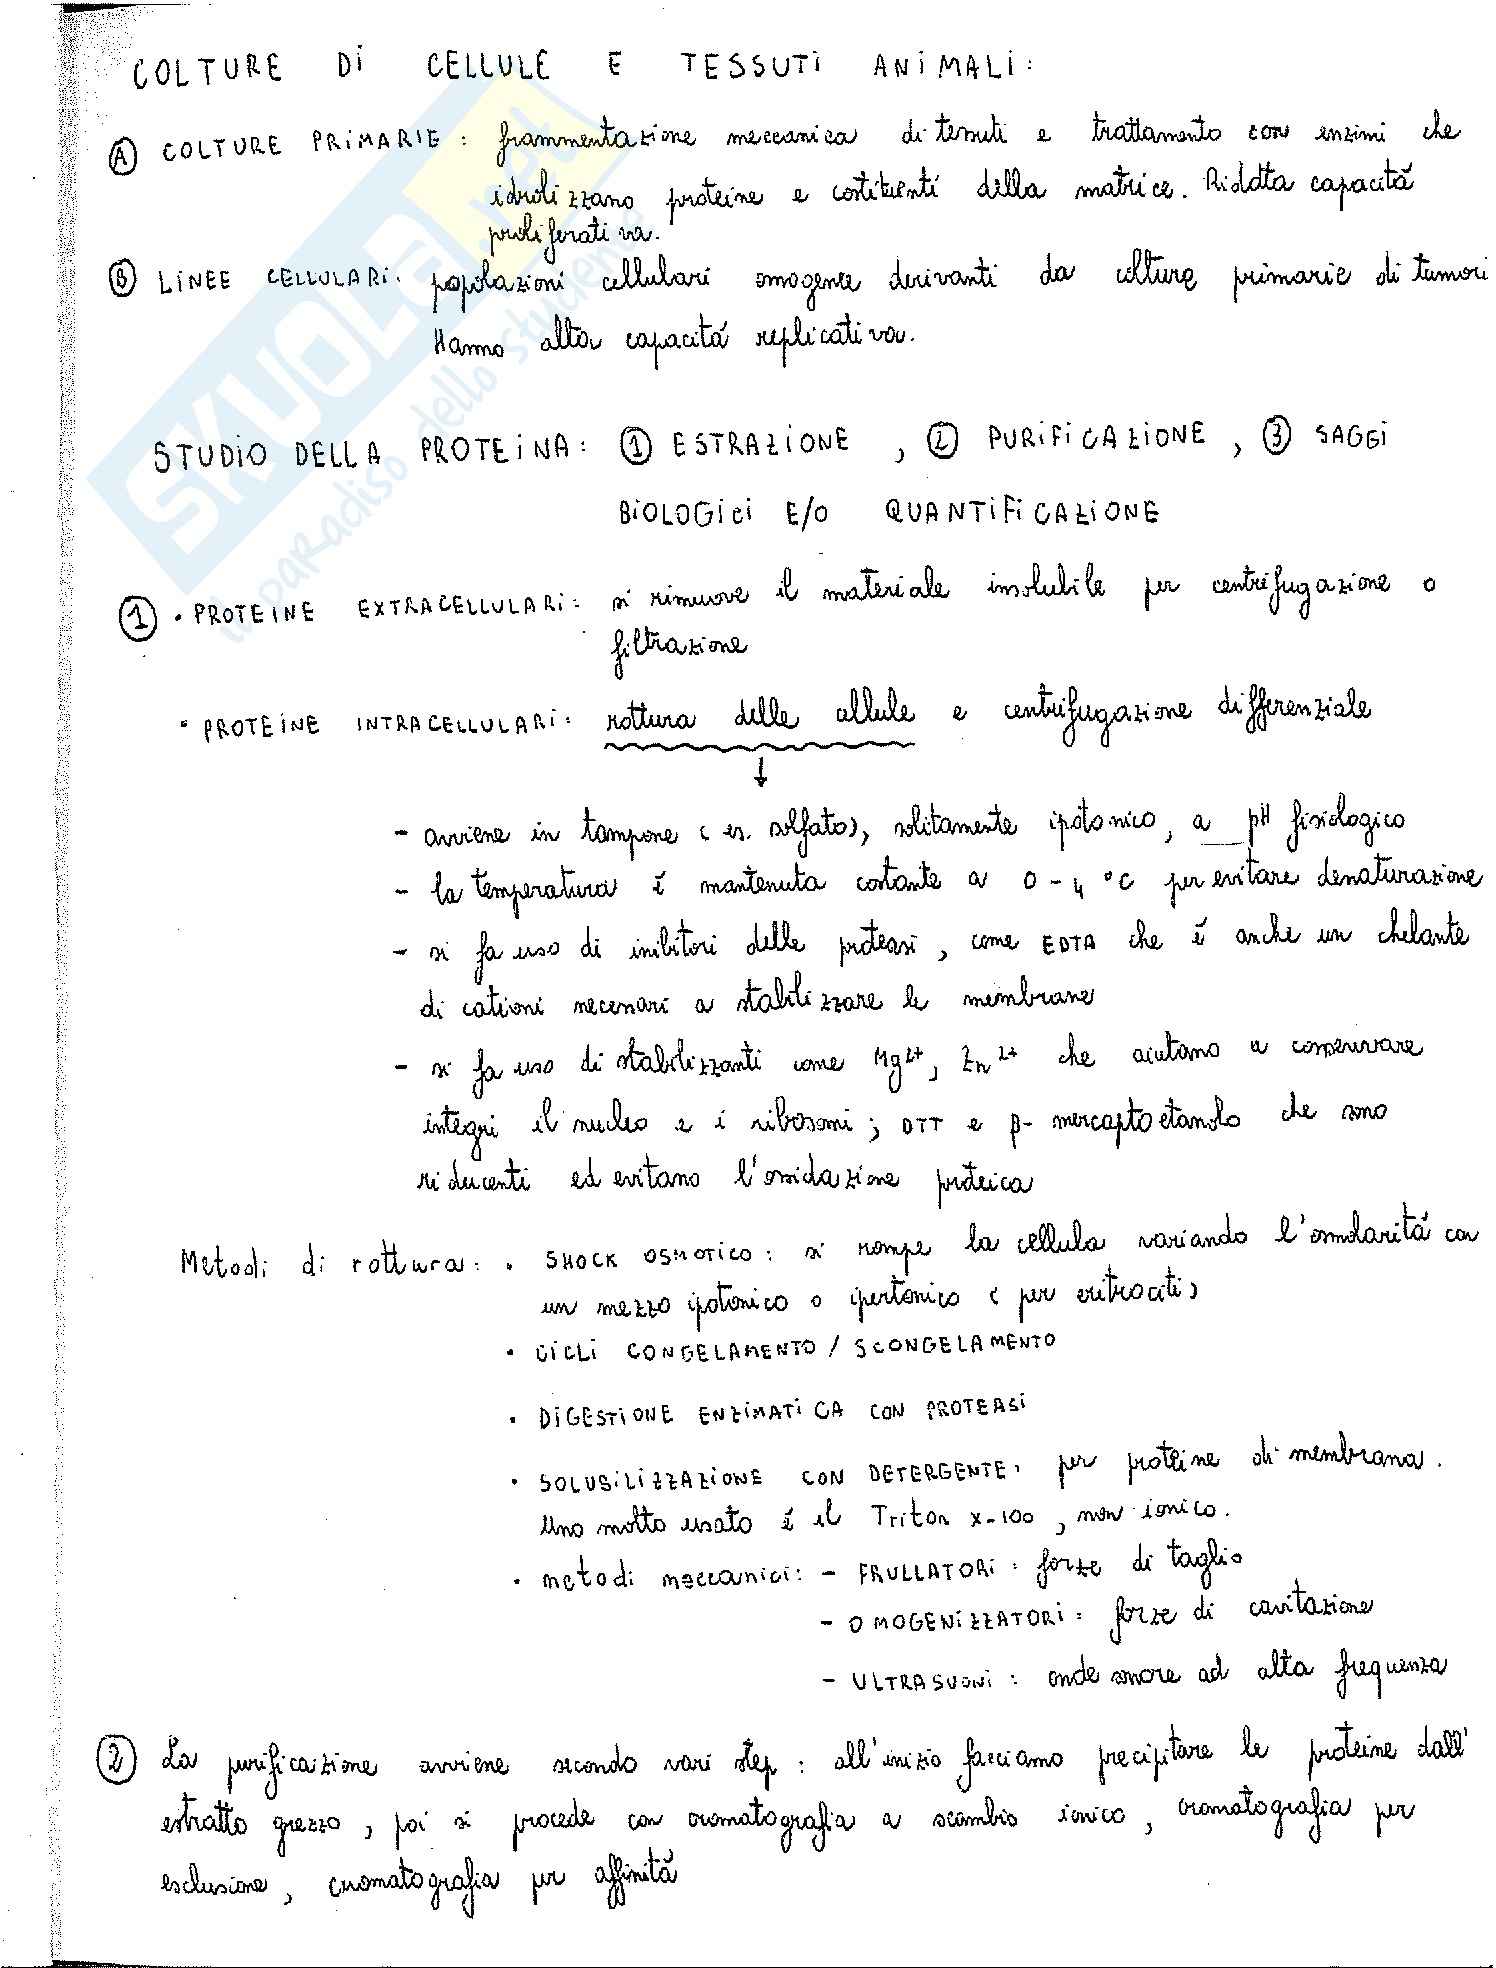 COLTURE Di CELLULE E TESSUTi ANiMALi:
Ⓐ COLTURE PRiMARIE : frammentazione meccanica di tessuti e trattamento con enzimi che
idrolizzano proteine e costituenti della matrice. Ridotta capacitá
proliferativa.
Ⓑ LiNEE CELLULARi: popolazioni cellulari omogenee derivanti da colture primarie di tumori
Hanno alta capacitá replicativa.
STUDiO DELLA PROTEiNA: ① ESTRAZiONE , ② PURiFiCAZiONE , ③ SAGGi
BiOLOGici E/O QUANTiFiCAZiONE
① • PROTEiNE EXTRACELLULARi: si rimuove il materiale insolubile per centrifugazione o
filtrazione
• PROTEiNE iNTRACELLULARi: rottura delle cellule e centrifugazione differenziale
↓
- avviene in tampone ( es. solfato), solitamente ipotonico, a pH fisiologico
- la temperatura é mantenuta costante a 0 - 4 °C per evitare denaturazione
- si fa uso di inibitori delle proteasi, come EDTA che é anche un chelante
di cationi necessari a stabilizzare le membrane
- si fa uso di stabilizzanti come Mg2+, Zn2+ che aiutano a conservare
integri il nucleo e i ribosomi ; DTT e β- mercaptoetanolo che sono
riducenti ed evitano l'ossidazione proteica
Metodi di rottura: • SHOCK OSMOTiCO: si rompe la cellula variando l'osmolaritá con
un mezzo ipotonico o ipertonico ( per eritrociti)
• CiCLi CONGELAMENTO / SCONGELAMENTO
• DiGESTiONE ENZiMATiCA CON PROTEASi
• SOLUBiLiZZAZiONE CON DETERGENTE: per proteine di membrana.
Uno molto usato é il Triton X-100 , non ionico.
• metodi meccanici: - FRULLATORi: forze di taglio
- OMOGENiZZATORi: forze di cavitazione
- ULTRASUONi: onde sonore ad alta frequenza
② La purificazione avviene secondo vari step : all'inizio facciamo precipitare le proteine dall'
estratto grezzo , poi si procede con cromatografia a scambio ionico , cromatografia per
esclusione , cromatografia per affinitá
SKUOLA.net
il paradiso dello studente